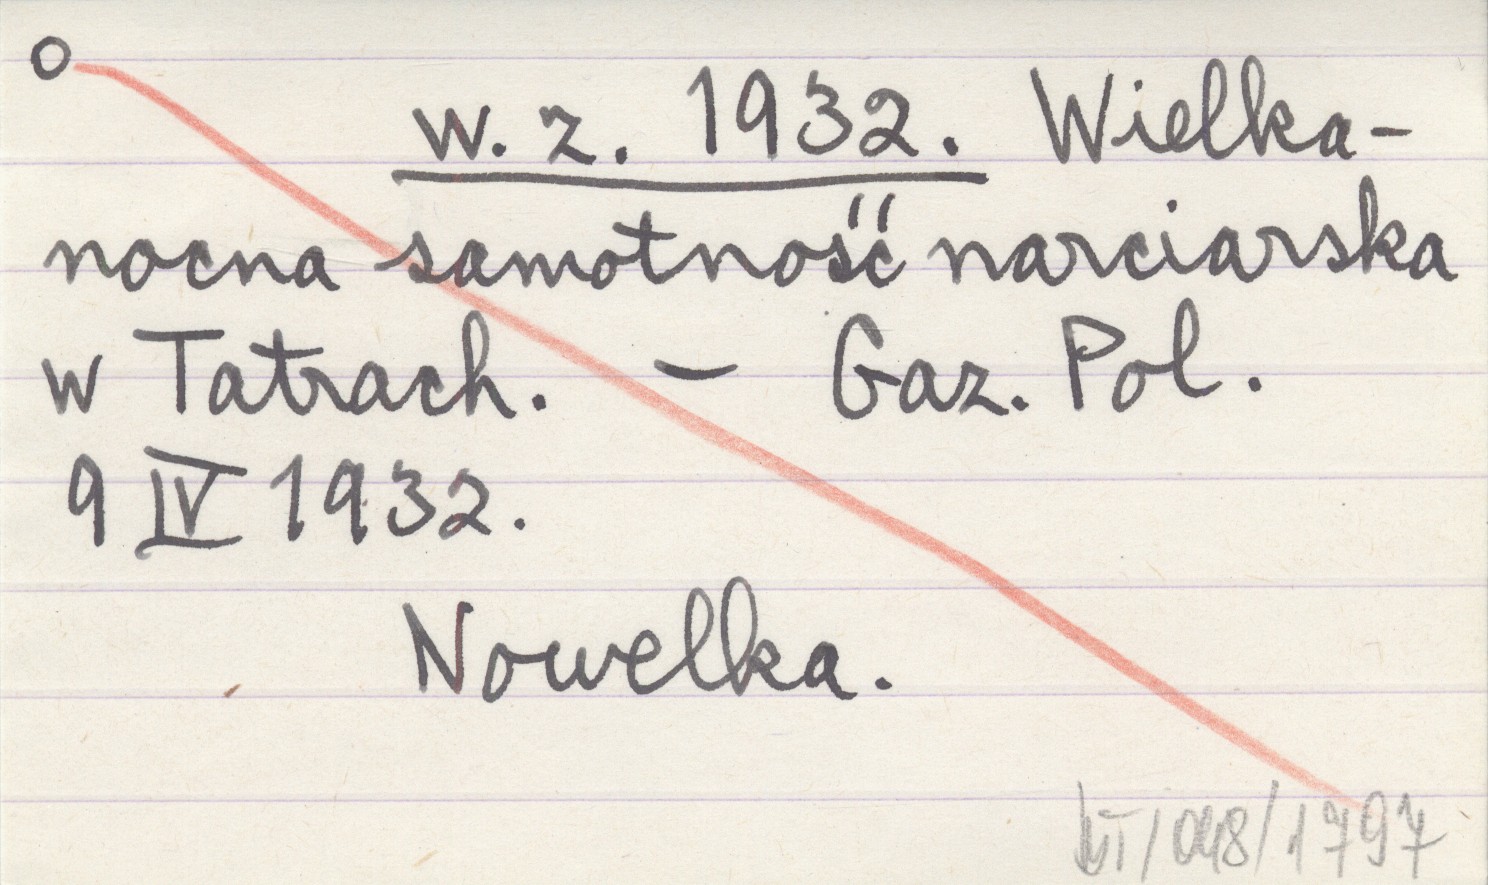 o
w. z. 1932. Wielka-
nocna samotność narciarska
w Tatrach. – Gaz. Pol.
9 IV 1932.
Nowelka.
/048/1797